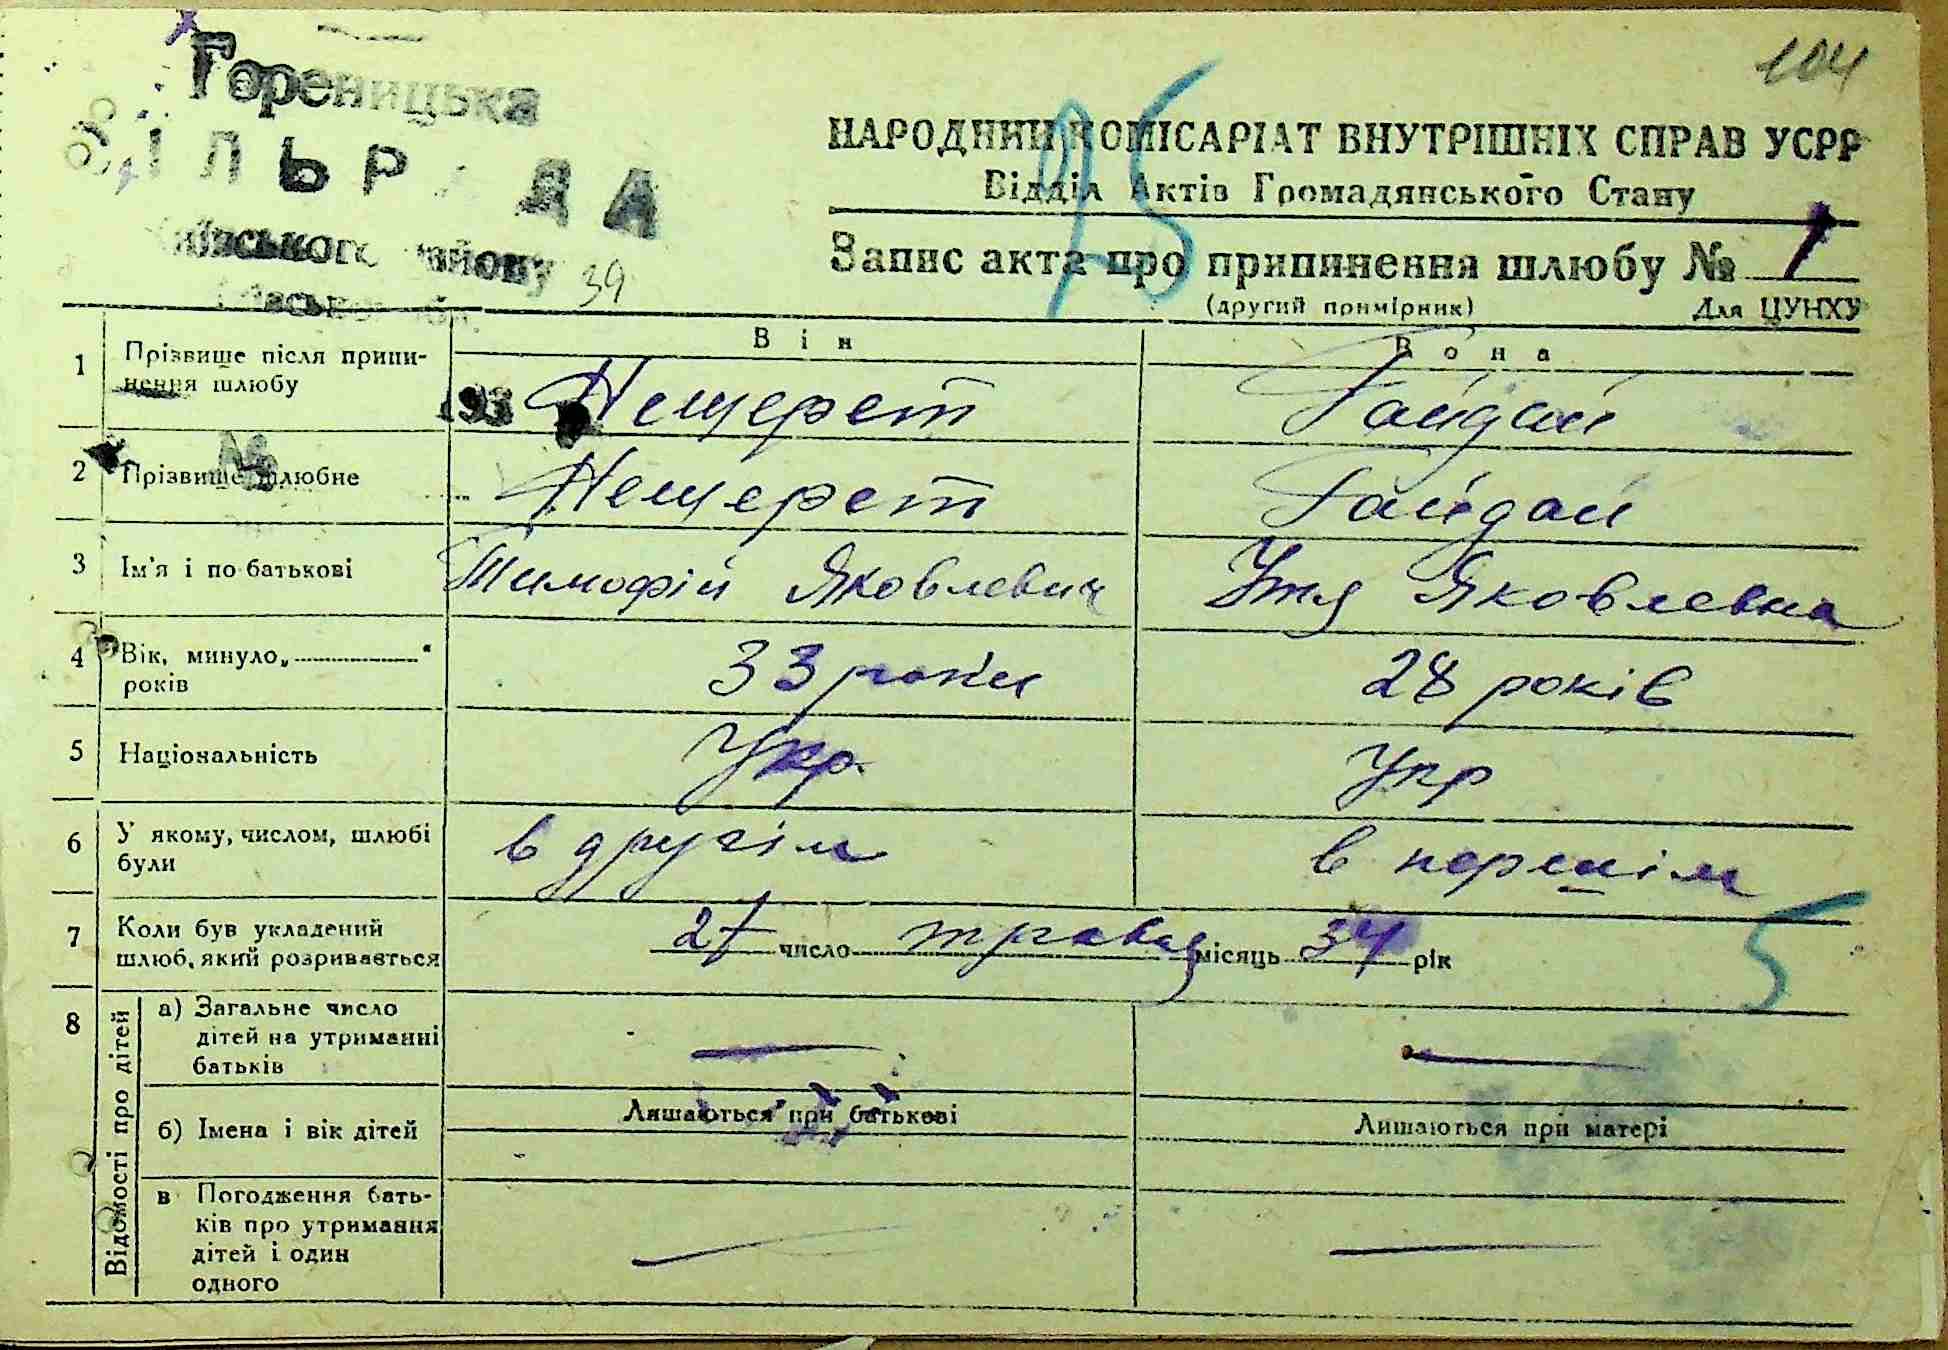 104
Гореницька
СІЛЬРАДА
Київського району
39
НАРОДНИЙ КОМІСАРІАТ ВНУТРІШНІХ СПРАВ УСРР
Відділ Актів Громадянського Стану
95
Запис акта про припинення шлюбу № 1
(другий примірник) Для ЦУНХУ
Він Вона
1 Прізвище після припи-
нення шлюбу
193
Нещерет Гайдай
2 Прізвище шлюбне Нещерет Гайдай
№
3 Ім'я і по-батькові Тимофій Яковлевич Устя Яковлевна
4 Вік, минуло „ “
років
33 роки 28 років
5 Національність Укр. Укр
6 У якому, числом, шлюбі
були
в другім в першім
7 Коли був укладений
шлюб, який розривається
27 число травня місяць 34 рік
5
8 Відомості про дітей
а) Загальне число
дітей на утриманні
батьків
б) Імена і вік дітей
Лишаються при батькові Лишаються при матері
в Погодження бать-
ків про утримання
дітей і один
одного